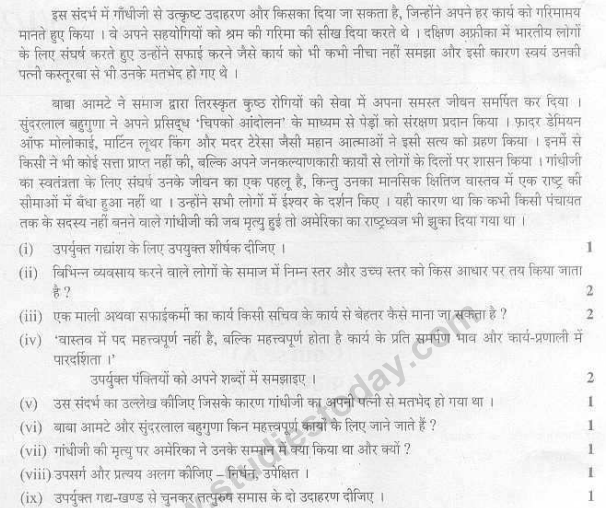 इस संदर्भ में गाँधीजी से उत्कृष्ट उदाहरण और किसका दिया जा सकता है, जिन्होंने अपने हर कार्य को गरिमामय
मानते हुए किया । वे अपने सहयोगियों को श्रम की गरिमा की सीख दिया करते थे । दक्षिण अफ़्रीका में भारतीय लोगों
के लिए संघर्ष करते हुए उन्होंने सफ़ाई करने जैसे कार्य को भी कभी नीचा नहीं समझा और इसी कारण स्वयं उनकी
पत्नी कस्तूरबा से भी उनके मतभेद हो गए थे ।
बाबा आमटे ने समाज द्वारा तिरस्कृत कुष्ठ रोगियों की सेवा में अपना समस्त जीवन समर्पित कर दिया ।
सुंदरलाल बहुगुणा ने अपने प्रसिद्ध 'चिपको आंदोलन' के माध्यम से पेड़ों को संरक्षण प्रदान किया । फ़ादर डेमियन
ऑफ मोलोकाई, मार्टिन लूथर किंग और मदर टैरेसा जैसी महान आत्माओं ने इसी सत्य को ग्रहण किया । इनमें से
किसी ने भी कोई सत्ता प्राप्त नहीं की, बल्कि अपने जनकल्याणकारी कार्यों से लोगों के दिलों पर शासन किया । गाँधीजी
का स्वतंत्रता के लिए संघर्ष उनके जीवन का एक पहलू है, किन्तु उनका मानसिक क्षितिज वास्तव में एक राष्ट्र की
सीमाओं में बँधा हुआ नहीं था । उन्होंने सभी लोगों में ईश्वर के दर्शन किए । यही कारण था कि कभी किसी पंचायत
तक के सदस्य नहीं बनने वाले गाँधीजी की जब मृत्यु हुई तो अमेरिका का राष्ट्रध्वज भी झुका दिया गया था ।
(i) उपर्युक्त गद्यांश के लिए उपयुक्त शीर्षक दीजिए । 1
(ii) विभिन्न व्यवसाय करने वाले लोगों के समाज में निम्न स्तर और उच्च स्तर को किस आधार पर तय किया जाता
है ? 2
(iii) एक माली अथवा सफाईकर्मी का कार्य किसी सचिव के कार्य से बेहतर कैसे माना जा सकता है ? 2
(iv) 'वास्तव में पद महत्त्वपूर्ण नहीं है, बल्कि महत्त्वपूर्ण होता है कार्य के प्रति समर्पण भाव और कार्य-प्रणाली में
पारदर्शिता ।'
उपर्युक्त पंक्तियों को अपने शब्दों में समझाइए । 2
(v) उस संदर्भ का उल्लेख कीजिए जिसके कारण गाँधीजी का अपनी पत्नी से मतभेद हो गया था । 1
(vi) बाबा आमटे और सुंदरलाल बहुगुणा किन महत्त्वपूर्ण कार्यों के लिए जाने जाते हैं ? 1
(vii) गाँधीजी की मृत्यु पर अमेरिका ने उनके सम्मान में क्या किया था और क्यों ? 1
(viii) उपसर्ग और प्रत्यय अलग कीजिए – निर्धन, उपेक्षित । 1
(ix) उपर्युक्त गद्य-खण्ड से चुनकर तत्पुरुष समास के दो उदाहरण दीजिए । 1
studiestoday.com